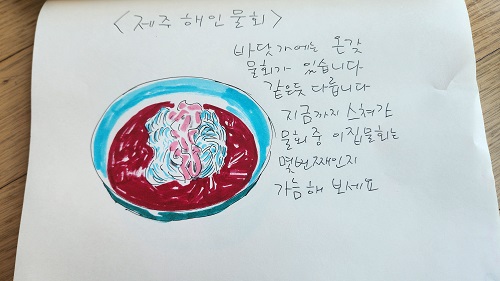 <제주 해인물회>
바닷가에는 온갖
물회가 있습니다
같은듯 다릅니다
지금까지 스쳐간
물회중 이집물회는
몇번째인지
가늠해 보세요